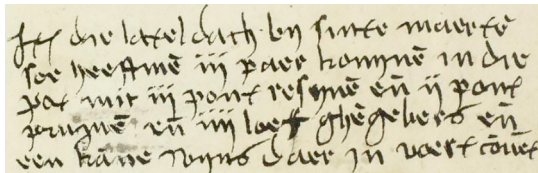 Itē die latel dach bij sinte maertē
soe heeftmē iij paer konynē in die
pot mit iij pont resynē eñ ij pont
pruynē eñ iiij loet ghēgebers eñ
een kāne wijns daer in voert cōuēt